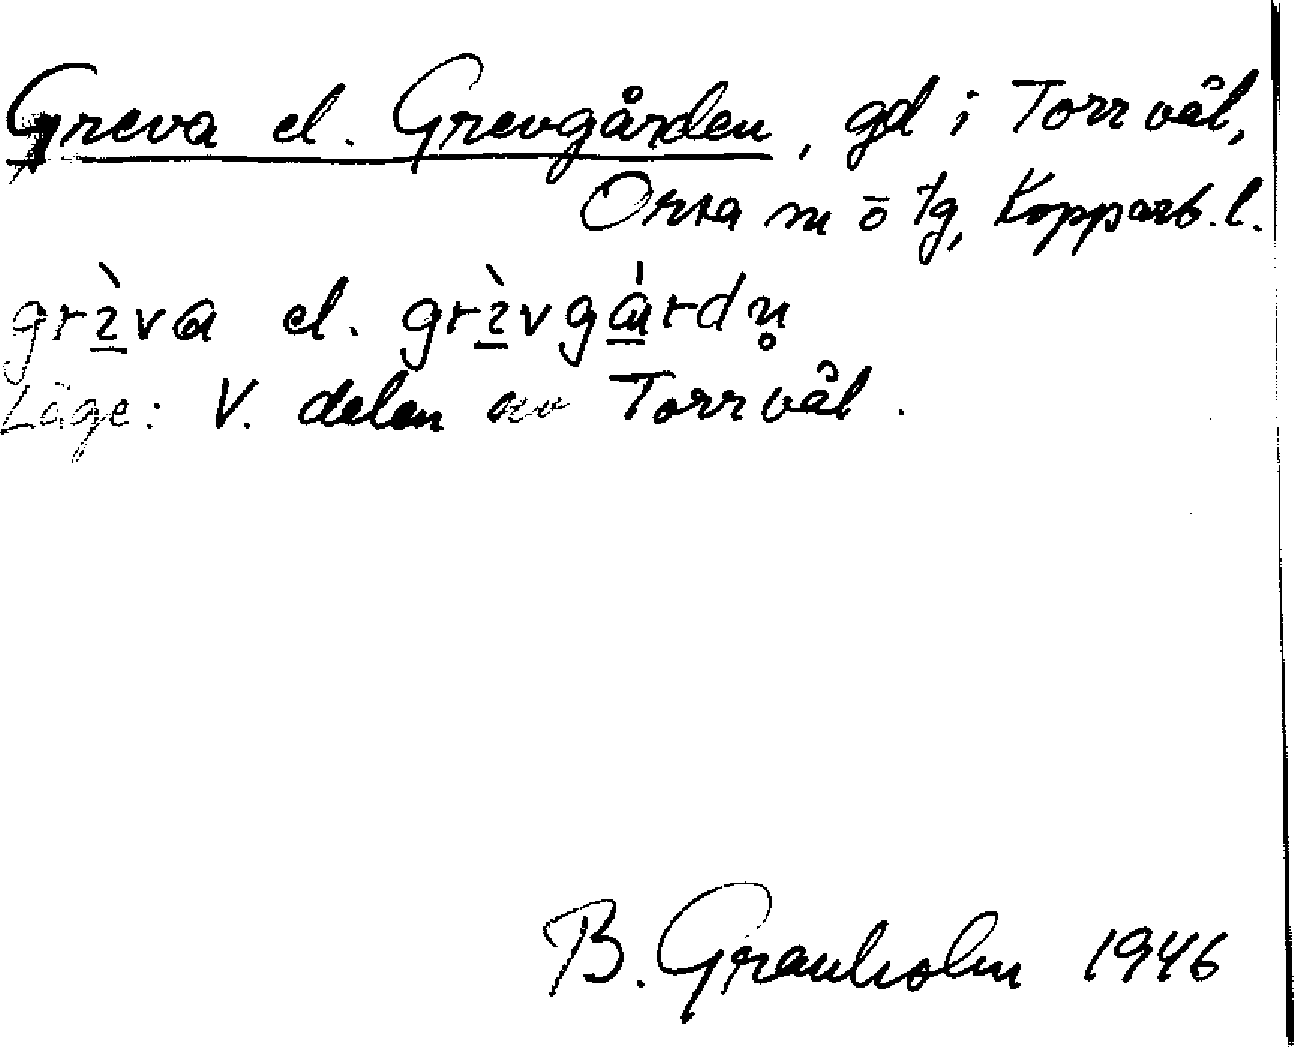 Greva el. Grevgården, gd i Torrvål,
Orsa sn o tg, Kopparb. l.
grɩ̀va el. grɩ̀vgárdn̥
Läge: V. delen av Torrvål.
B. Granholm 1946